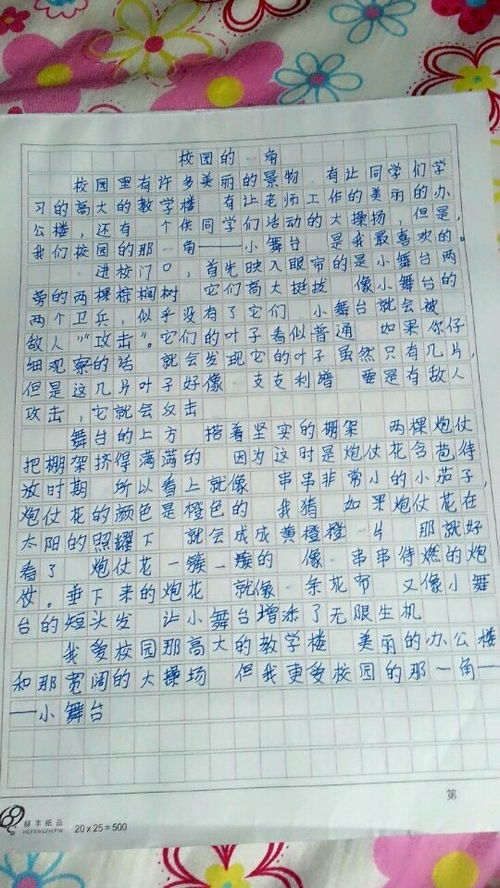 校园的一角
校园里有许多美丽的景物 有让同学们学
习的高大的教学楼 有让老师工作的美丽的办
公楼，还有 个供同学们活动的大操场，但是，
我们校园的那一角——小舞台 是我最喜欢的。
进校门口，首先映入眼帘的是小舞台两
旁的两棵棕榈树 它们高大挺拔 像小舞台的
两个卫兵，似乎没有了它们 小舞台就会被
敌人“攻击”。它们的叶子看似普通 如果你仔
细观察的话 就会发现它的叶子虽然只有几片，
但是这几片叶子好像 支支利增 要是有敌人
攻击，它就会攻击
舞台的上方 搭着坚实的棚架 两棵炮仗
把棚架挤得满满的 因为这时是炮仗花含苞待
放时期 所以看上就像 串串非常小的小茄子，
炮仗花的颜色是橙色的 我猜 如果炮仗花在
太阳的照耀下 就会成成黄橙橙一片 那就好
看了 炮仗花一簇一簇的 像一串串待燃的炮
仗。垂下来的炮花 就像一条花布 又像小舞
台的短头发 让小舞台增添了无限生机
我爱校园那高大的教学楼 美丽的办公楼
和那宽阔的大操场 但我更爱校园的那一角—
—小舞台
第
20×25=500